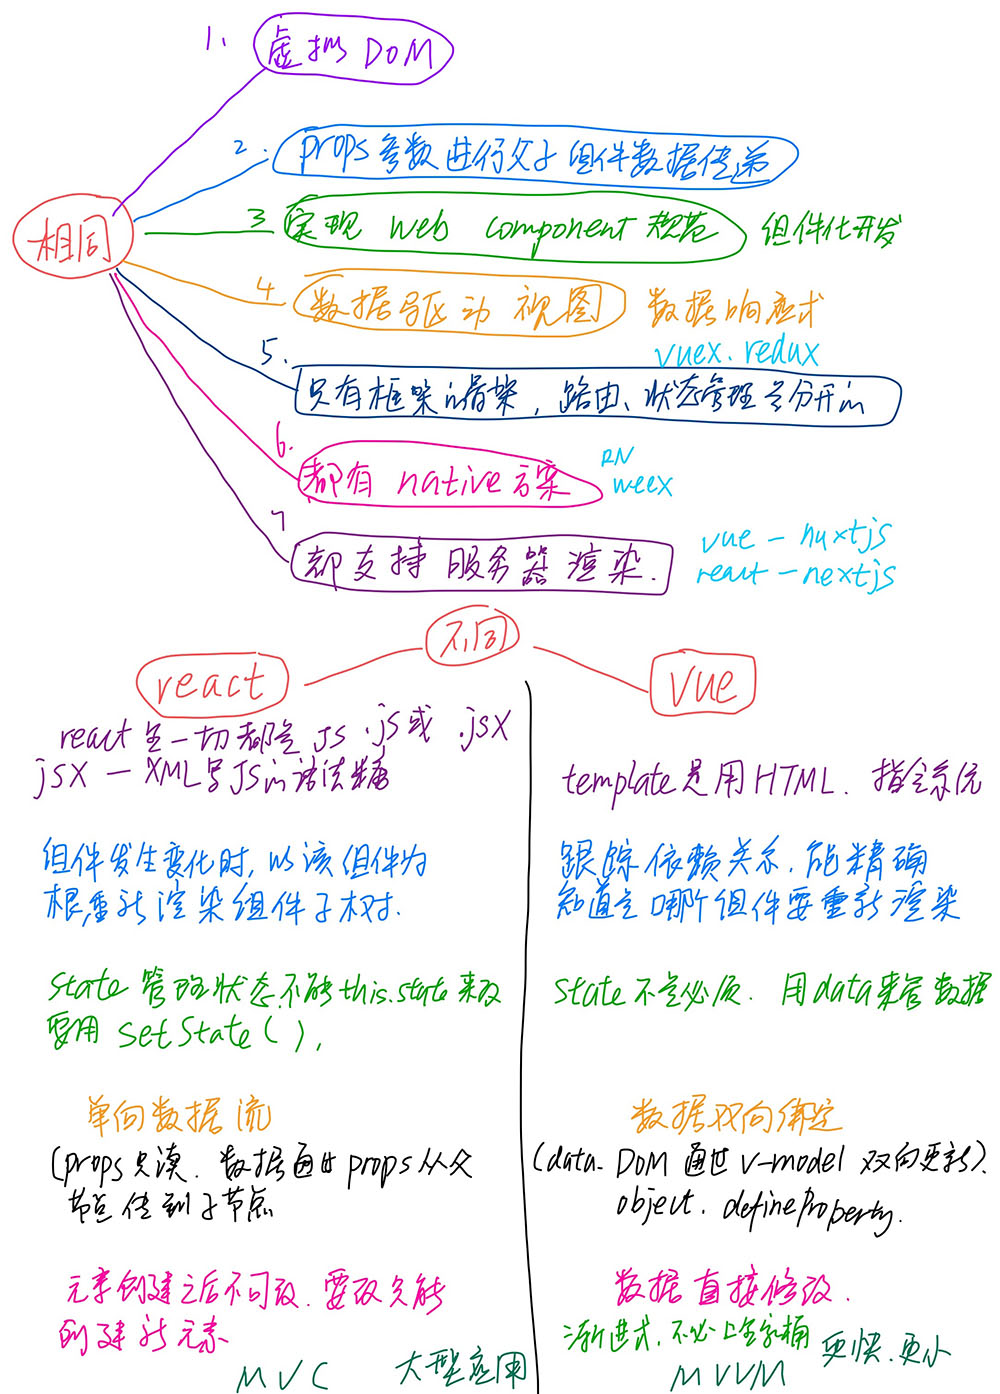 1、虚拟 DOM
2. props参数进行父子组件数据传递
3 实现 web component 规范 组件化开发
4 数据驱动 视图 数据响应式
vuex. redux
5. 只有框架的骨架，路由、状态管理是分开的
6. 都有 native 方案
RN
weex
7 都支持服务器渲染.
vue - nuxtjs
react - nextjs
相同
不同
react
react 里一切都是 JS .js或 .jsx
jsx — XML与JS的语法糖
组件发生变化时,以该组件为
根,重新渲染组件子树.
state 管理状态 不能this.state来改
要用 setState ( ),
单向数据流
(props只读. 数据通过props从父
节点传到子节点
元素创建之后不可改. 要改只能
创建新元素
MVC 大型应用
vue
template是用HTML. 指令系统
跟踪依赖关系. 能精确
知道是哪个组件要重新渲染
state 不是必须. 用data来管数据
数据双向绑定
(data. DOM 通过 v-model 双向更新).
object. defineProperty.
数据直接修改.
渐进式,不必上全家桶 更快.更小
MVVM